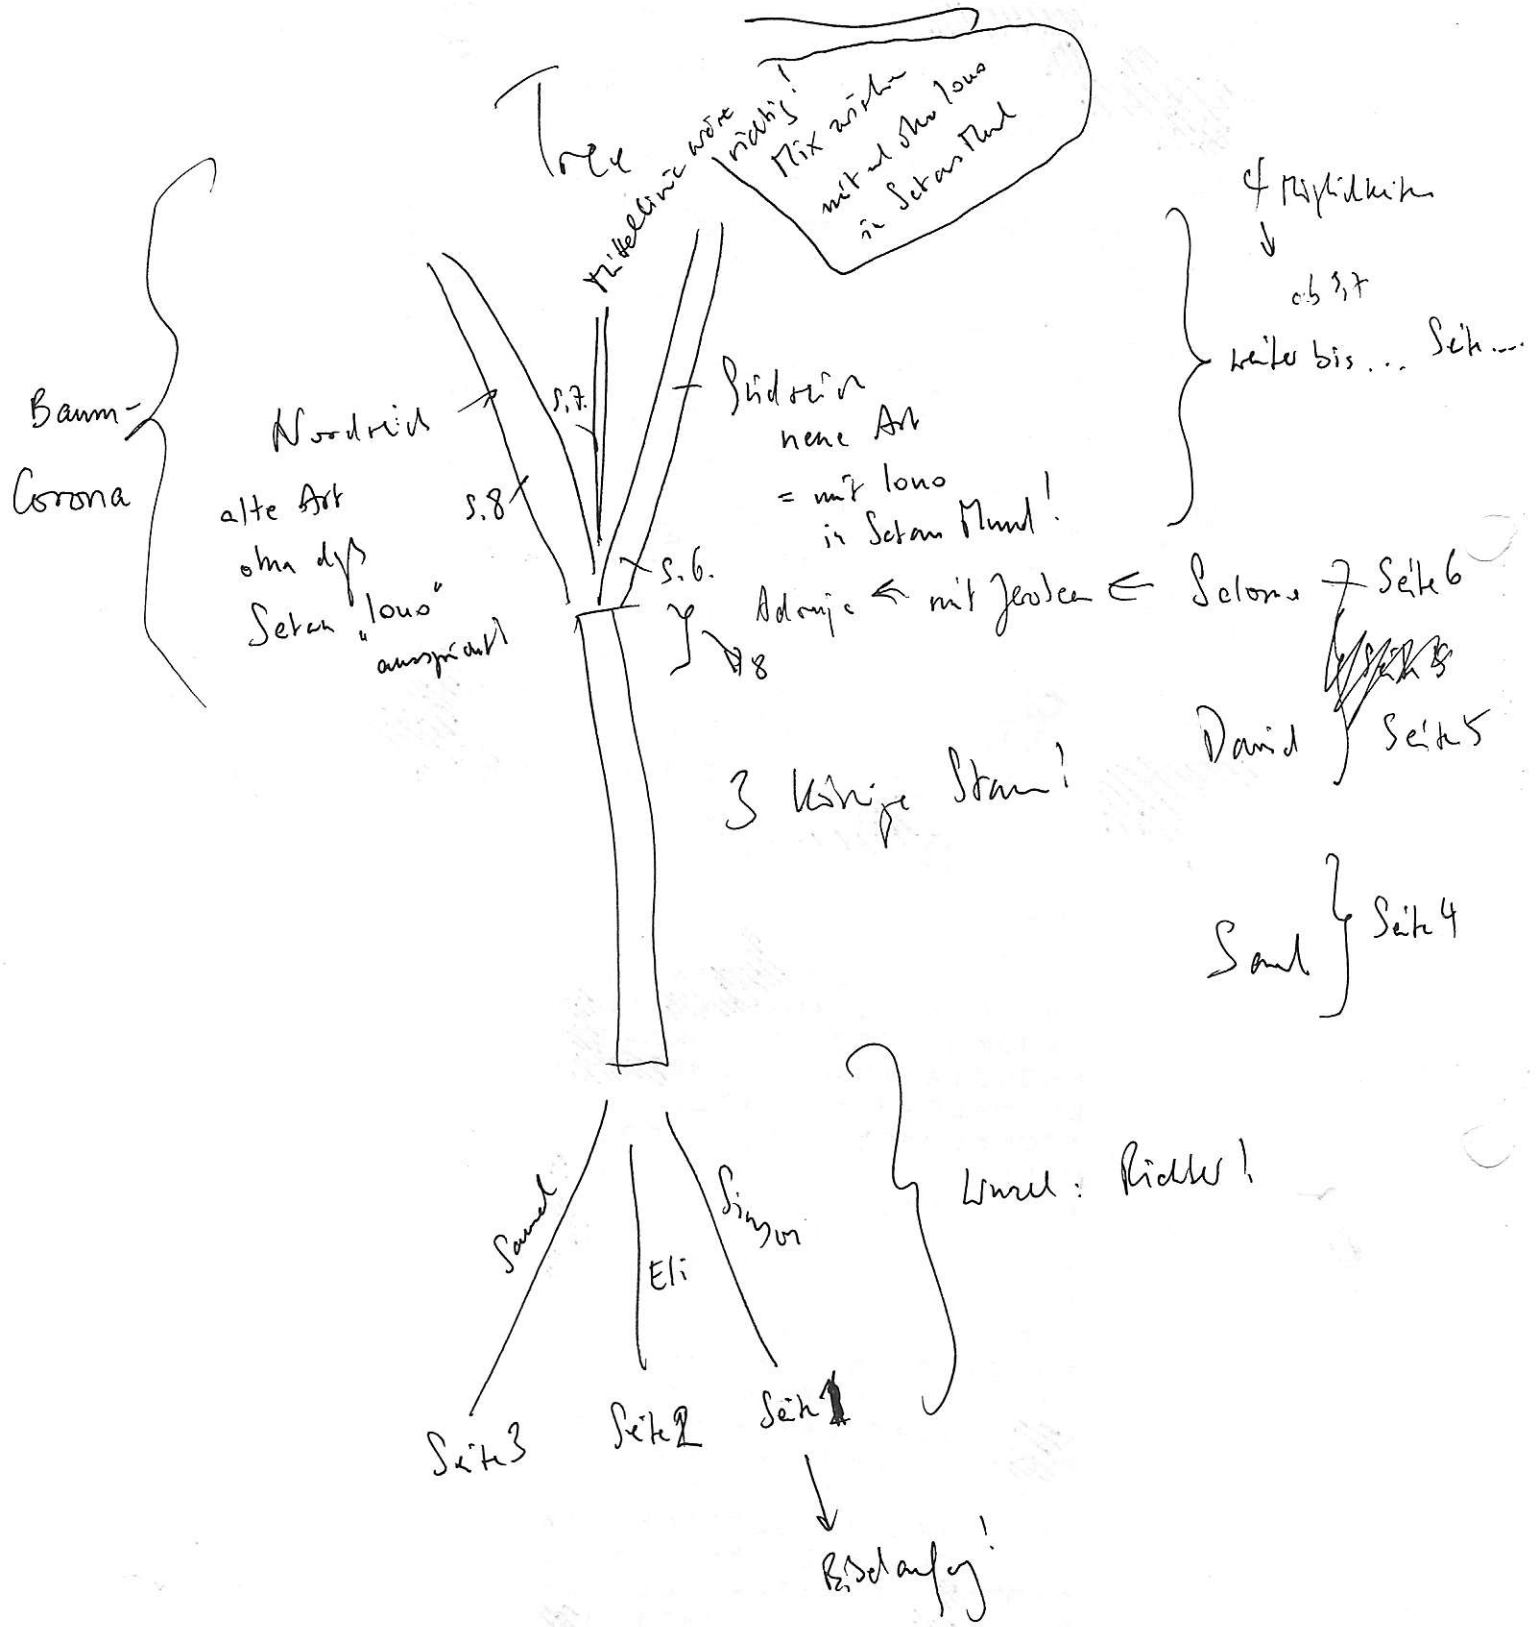 Tree
Mittellinie wäre
richtig!
Mix zwischen
mit und ohne lono
in Setans Mund
4 Möglichkeiten
ab S.7
weiter bis... Seite...
Baum-
Corona
Nordreich
alte Art
ohne daß
Setan "lono"
ausspricht!
S.7.
S.8
Südreich
neue Art
= mit lono
in Setans Mund!
S.6.
Adonija ← mit Jerobeam ← Salomo
Seite 6
8
David } Seite 5
3 Könige Stamm!
Saul } Seite 4
Wurzel: Richter!
Samuel
Eli
Simson
Seite 3
Seite 2
Seite 1
Bibelanfang!